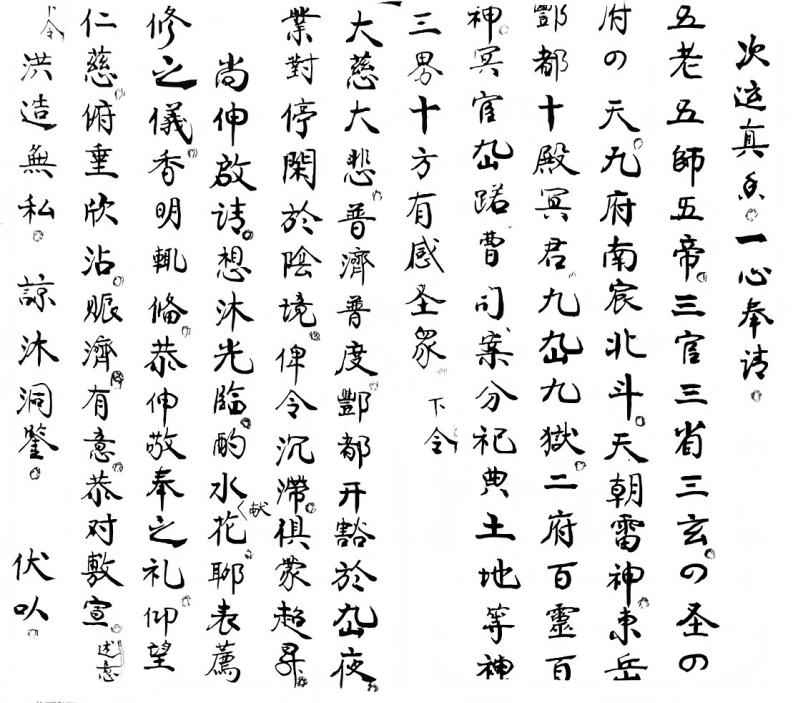 次运真香。一心奉请。
五老五師五帝。三官三省三玄。の圣の
府の天。九府南宸北斗。天朝雷神。東岳
酆都十殿冥君。九幽九獄。二府百靈百
神。冥官幽路曹司案分祀典土地等神
三界十方有感圣眾。下令
大慈大悲。普濟普度。酆都开豁於幽夜。
業對停閑於陰境。俾令沉滯。俱蒙超昇。
尚伸啟请。想沐光臨。酌水献花。聊表薦
修之儀。香明輒俻。恭伸敬奉之礼。仰望
仁慈。俯垂欣沾。賑濟。有意。恭对敷宣。述意
洪造無私。諒沐洞鑒。伏叺。